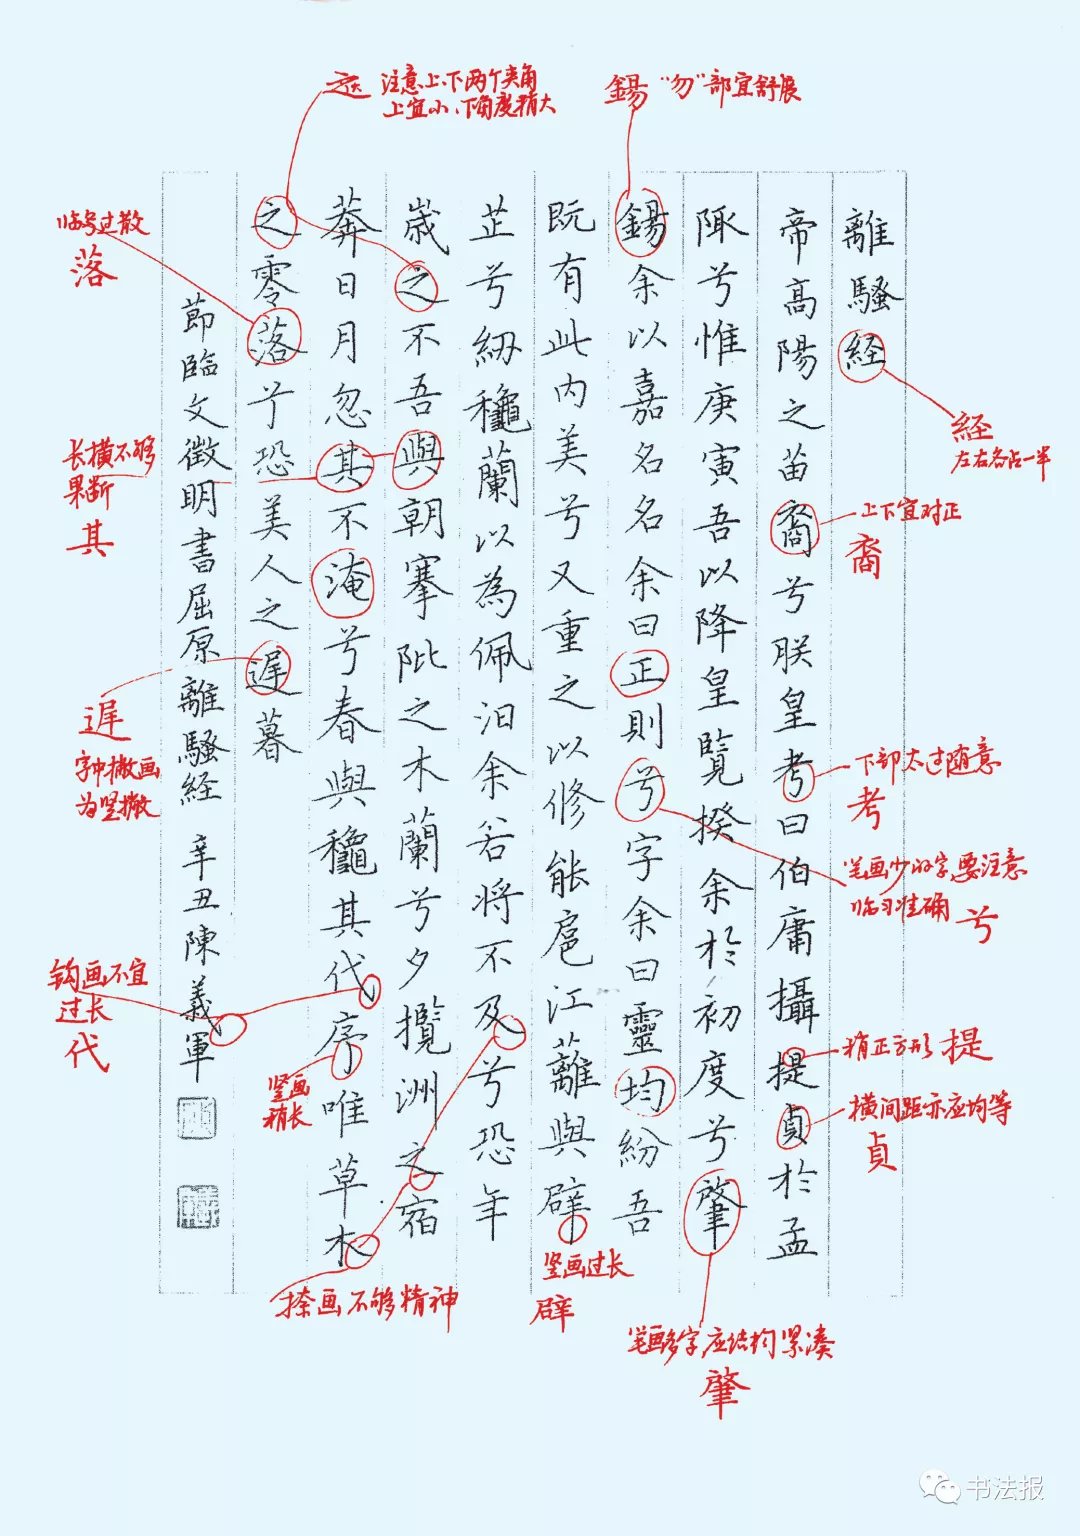 離騷経
帝高陽之苗裔兮朕皇考曰伯庸攝提貞於孟
陬兮惟庚寅吾以降皇覽揆余於初度兮肇
錫余以嘉名名余曰正則兮字余曰靈均紛吾
既有此内美兮又重之以修能扈江蘺與辟
芷兮紉穐蘭以為佩汩余若将不及兮恐年
歳之不吾與朝搴阰之木蘭兮夕攬洲之宿
莽日月忽其不淹兮春與穐其代序唯草木
之零落兮恐美人之遅暮
節臨文徵明書屈原離騷経 辛丑陳義軍
之 注意上、下两个夹角
上宜小、下角度稍大
錫 "勿"部宜舒展
経
左右各占一半
上下宜对正
裔
下部太过随意
考
笔画少的字,要注意
临习准确 兮
稍正方形 提
横间距亦应均等
貞
笔画多字,应结构紧凑
肇
竖画过长
辟
捺画不够精神
竖画
稍长
钩画不宜
过长
代
遅
字中撇画
为竖撇
长横不够
果断
其
临写过散
落
书法报